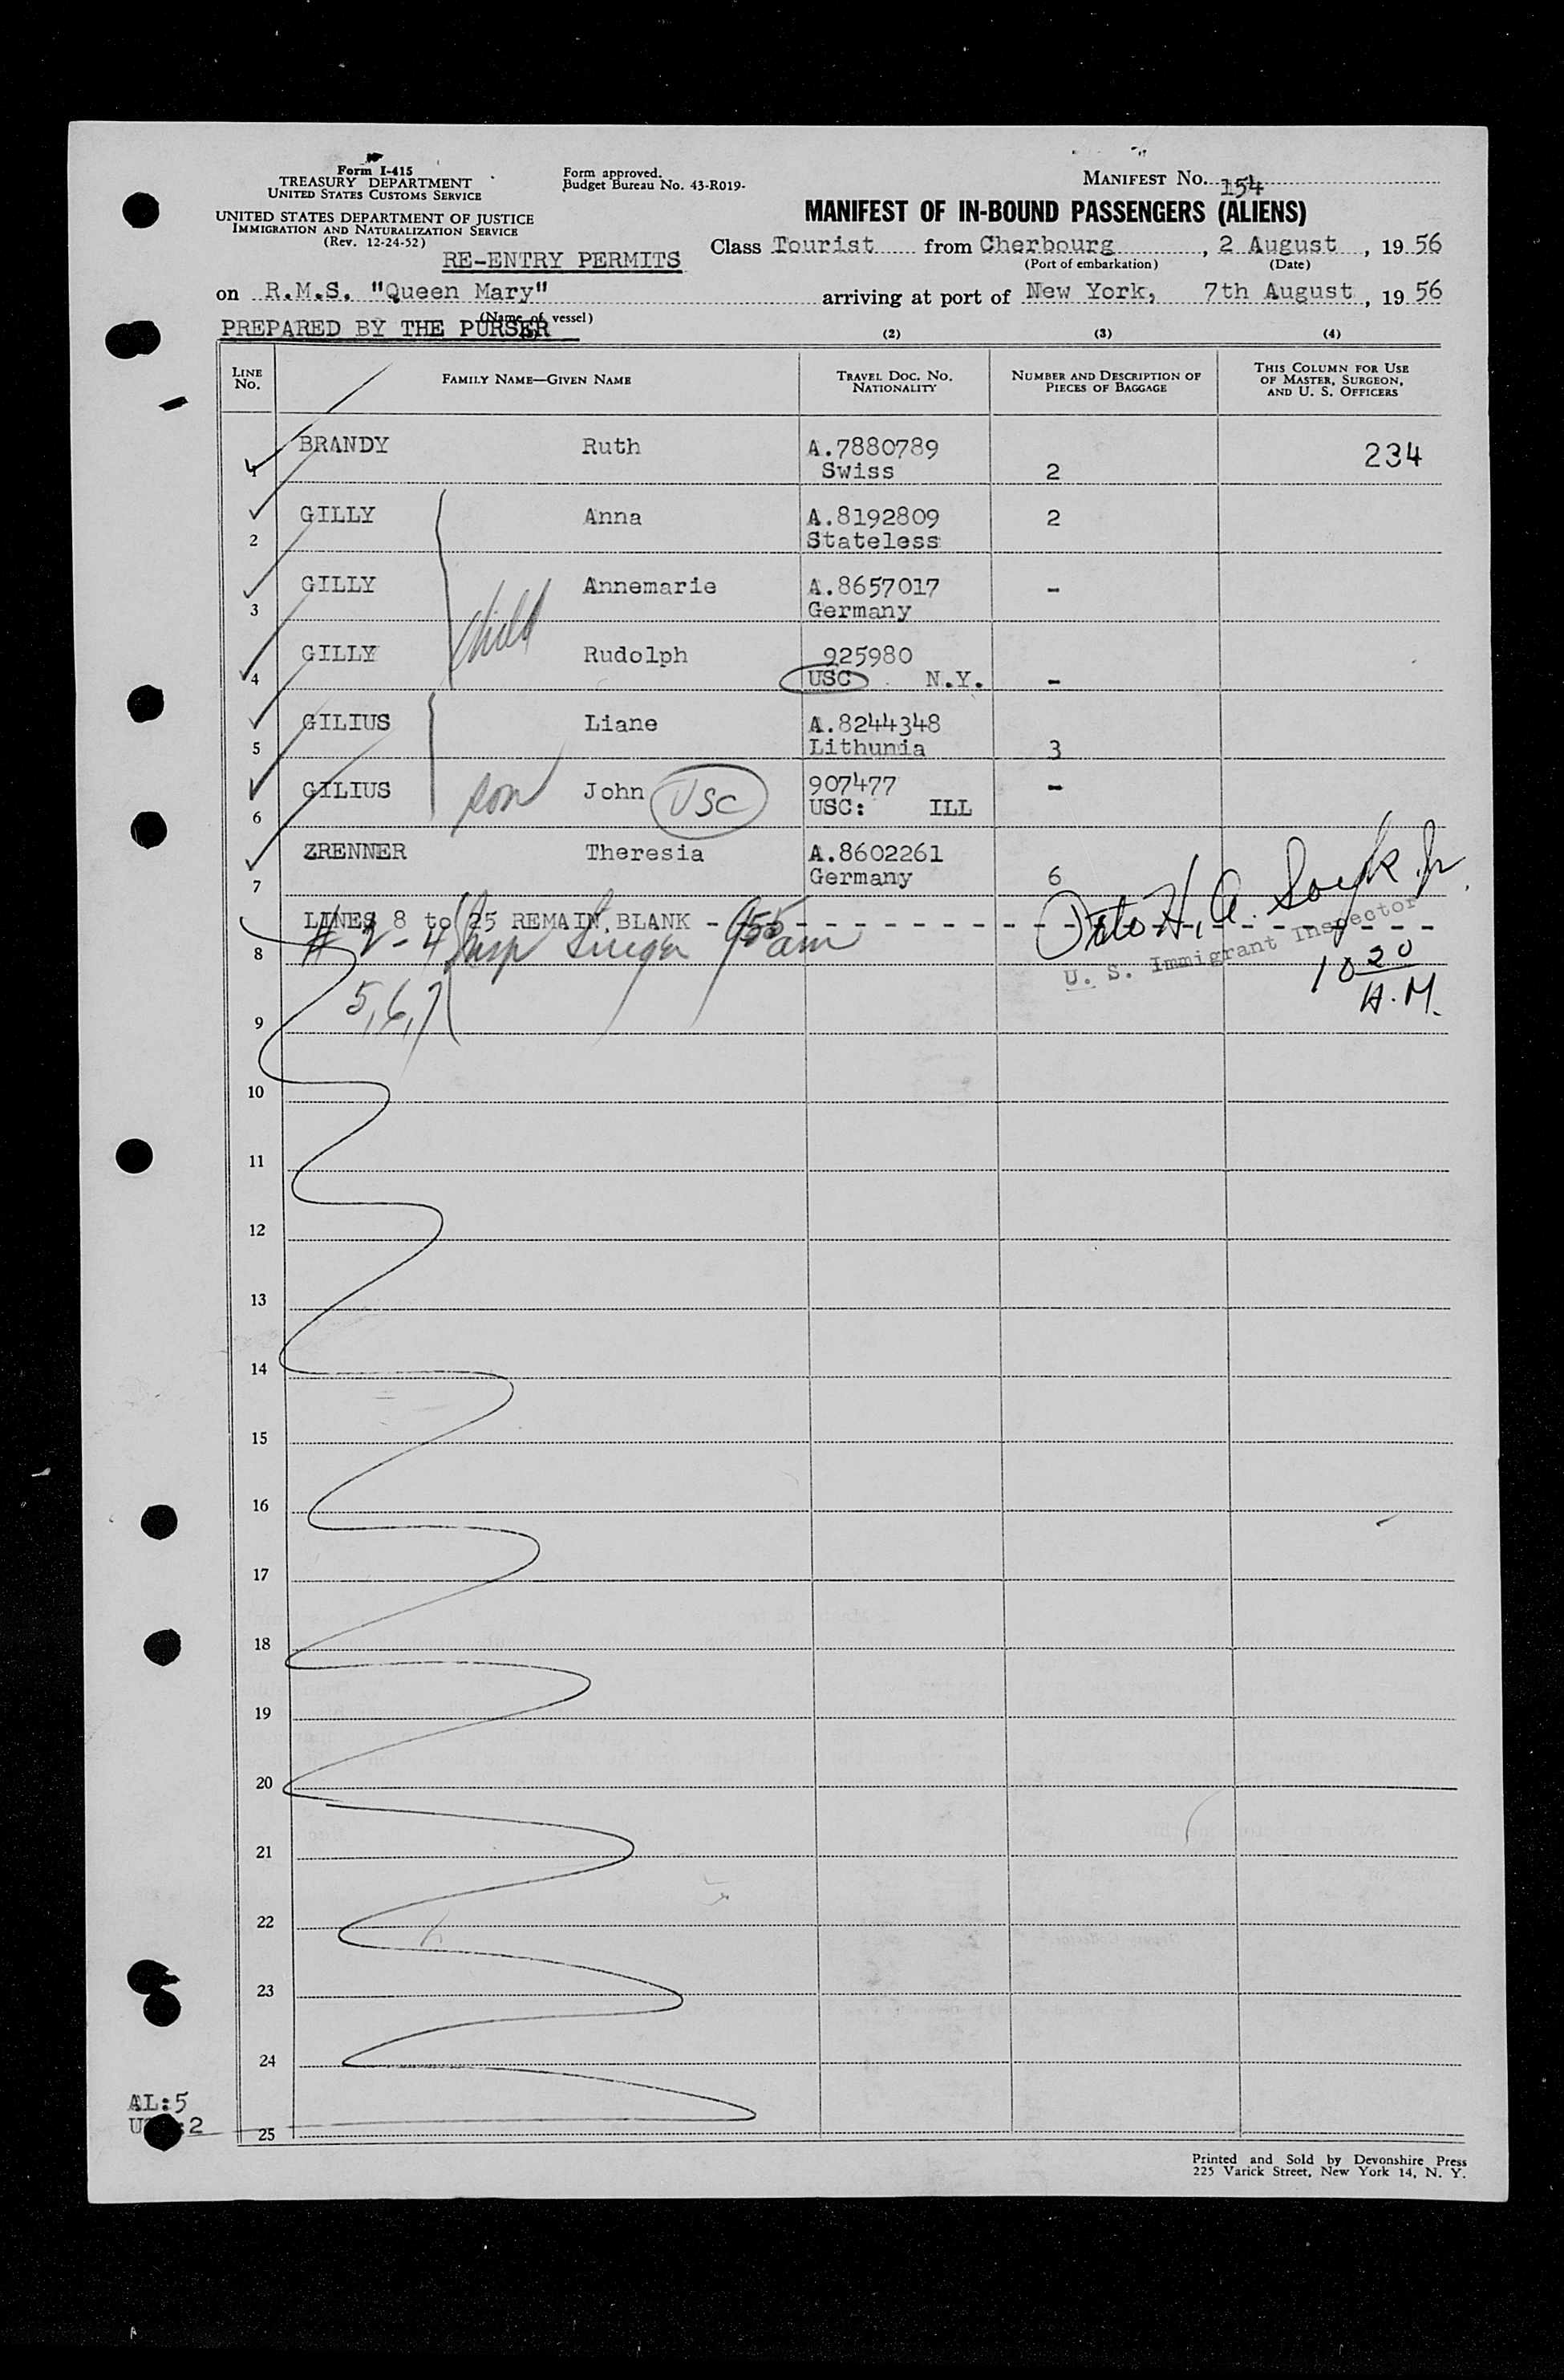 Form I-415
TREASURY DEPARTMENT
UNITED STATES CUSTOMS SERVICE
UNITED STATES DEPARTMENT OF JUSTICE
IMMIGRATION AND NATURALIZATION SERVICE
(Rev. 12-24-52)
Form approved.
Budget Bureau No. 43-R019-
MANIFEST NO. 154
MANIFEST OF IN-BOUND PASSENGERS (ALIENS)
RE-ENTRY PERMITS
Class Tourist from Cherbourg, 2 August, 19 56
(Port of embarkation) (Date)
on R.M.S. "Queen Mary" arriving at port of New York, 7th August, 19 56
(Name of vessel)
PREPARED BY THE PURSER
(2) (3) (4)
LINE NO. FAMILY NAME—GIVEN NAME TRAVEL DOC. NO. NATIONALITY NUMBER AND DESCRIPTION OF PIECES OF BAGGAGE THIS COLUMN FOR USE OF MASTER, SURGEON, AND U. S. OFFICERS
BRANDY Ruth A.7880789 234
1 Swiss 2
GILLY Anna A.8192809 2
2 Stateless
GILLY Annemarie A.8657017 -
3 Germany
child
GILLY Rudolph 925980
4 USC N.Y. -
GILIUS Liane A.8244348
5 Lithunia 3
GILIUS son John USC 907477 -
6 USC: ILL
ZRENNER Theresia A.8602261
7 Germany 6
LINES 8 to 25 REMAIN BLANK - - - - - - - - - - - - - - - - - -
# 2-4 955 am
8
U. S. Immigrant Inspector
10 20
A.M.
5,6,7
9
10
11
12
13
14
15
16
17
18
19
20
21
22
23
24
25
AL:5
:2
Printed and Sold by Devonshire Press
225 Varick Street, New York 14, N. Y.